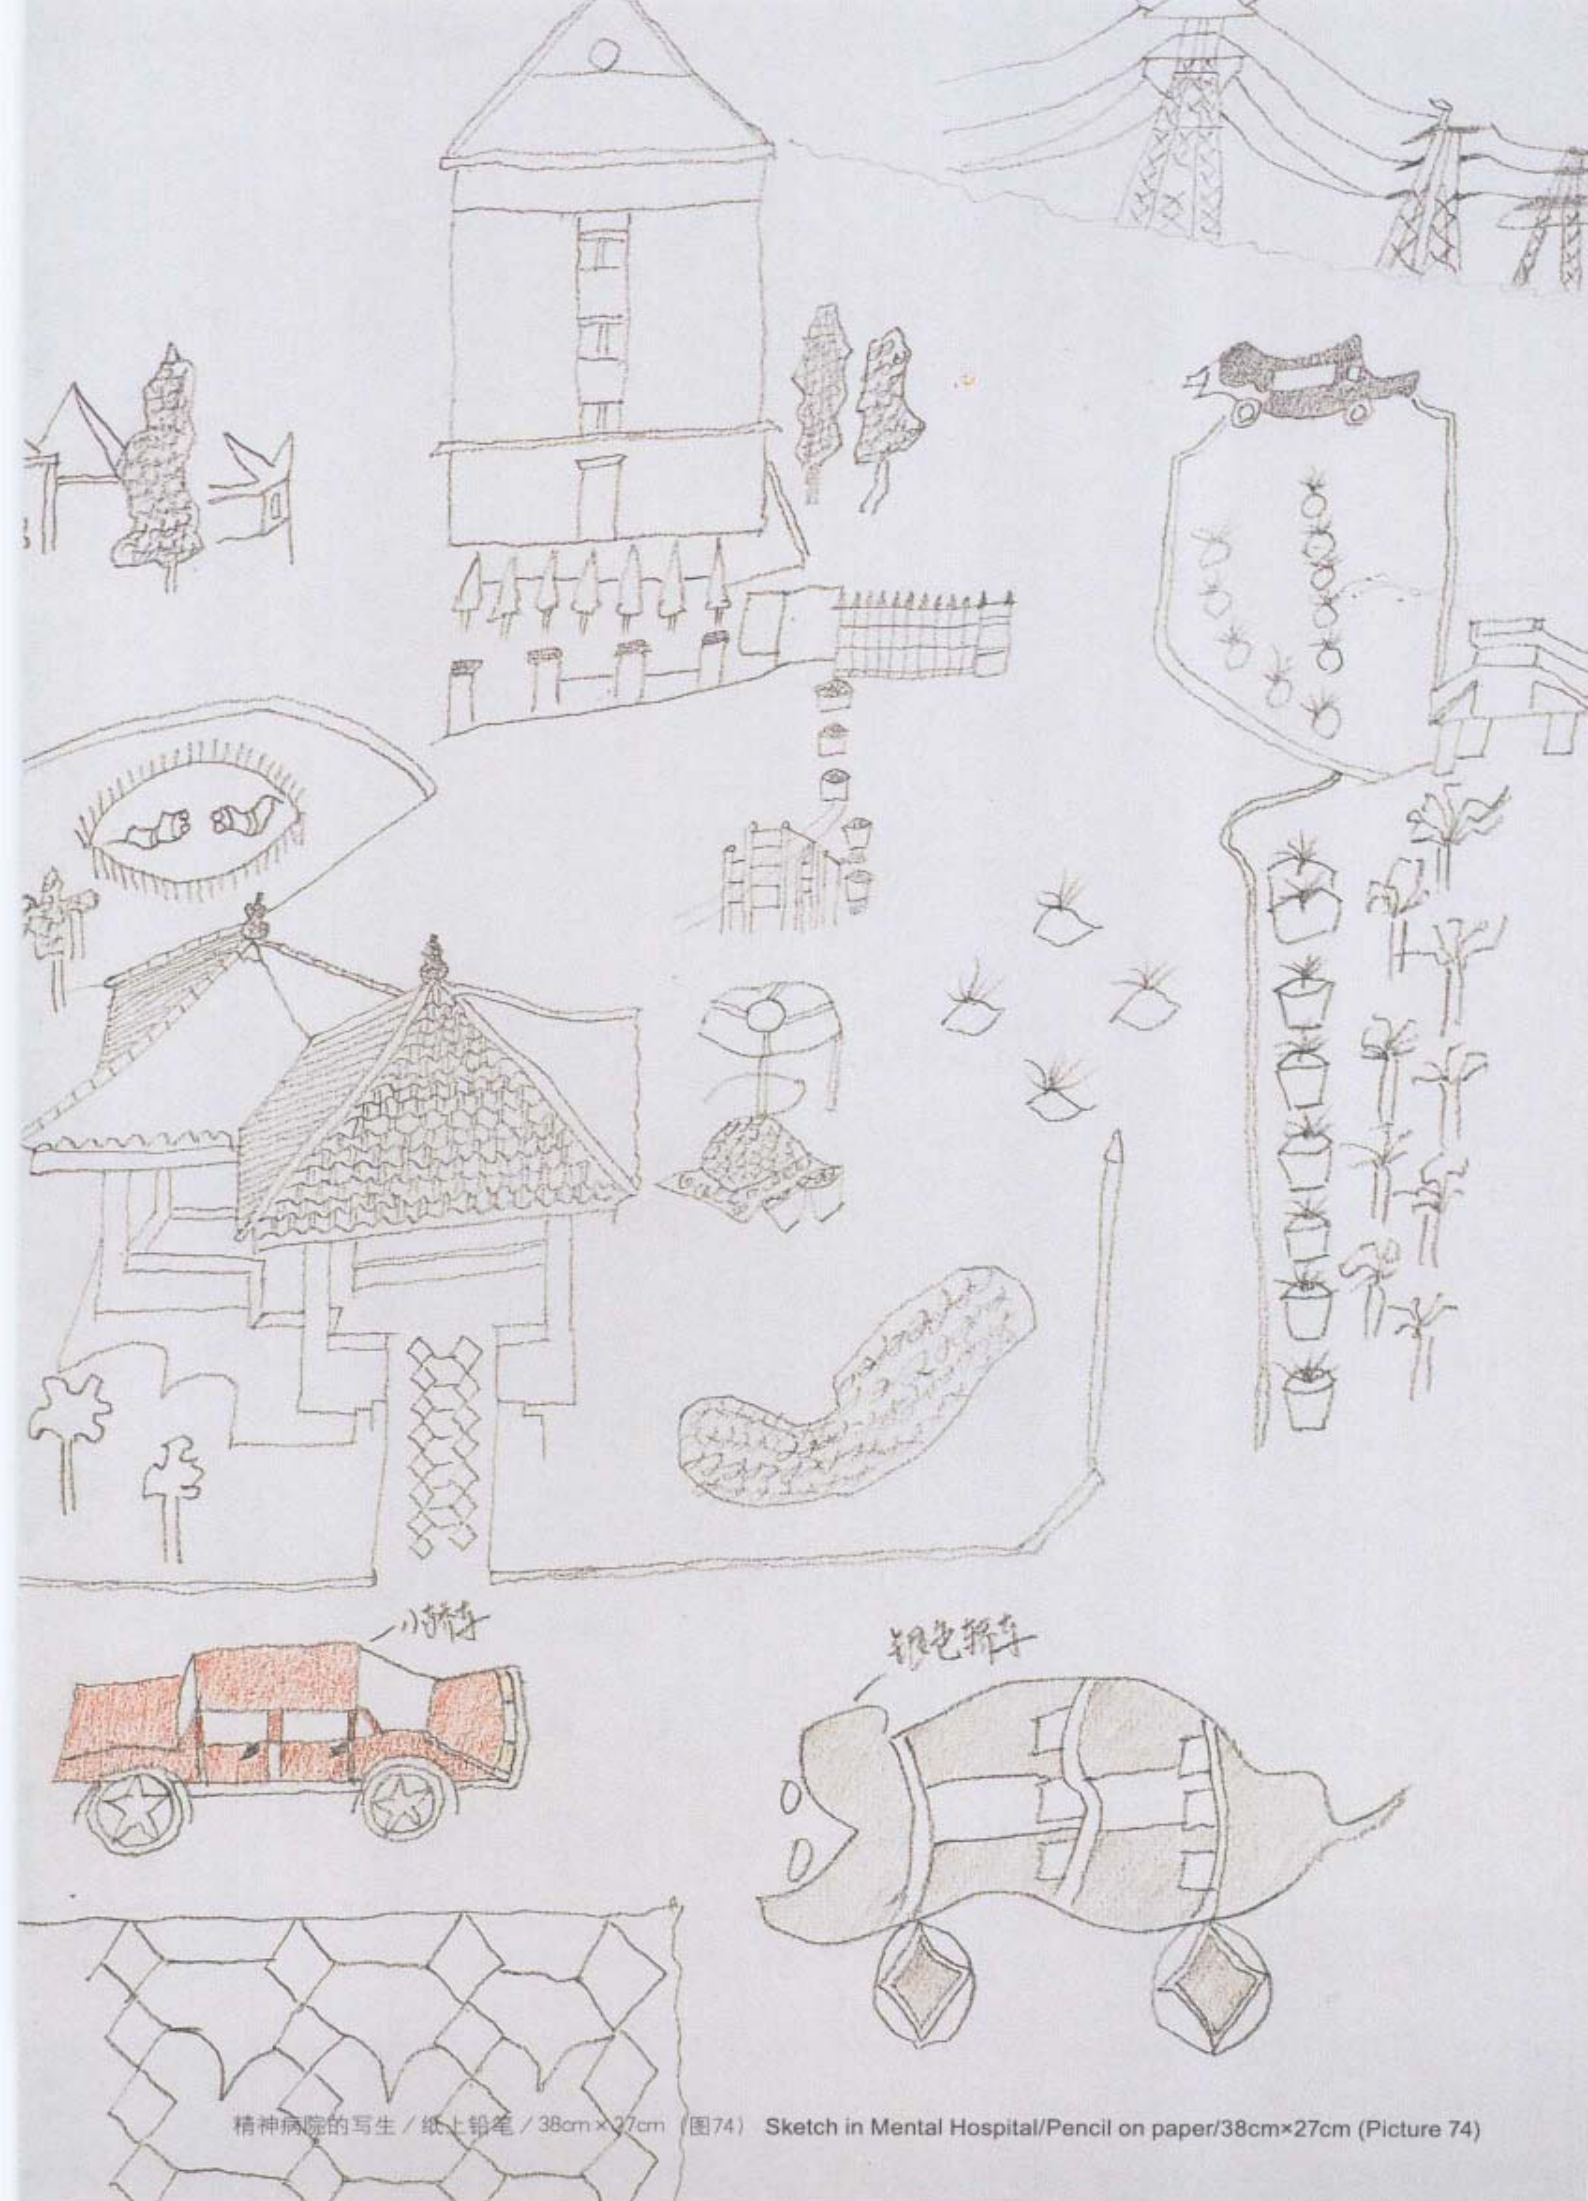 小轿车
银色轿车
精神病院的写生／纸上铅笔／38cm×27cm（图74） Sketch in Mental Hospital/Pencil on paper/38cm×27cm (Picture 74)